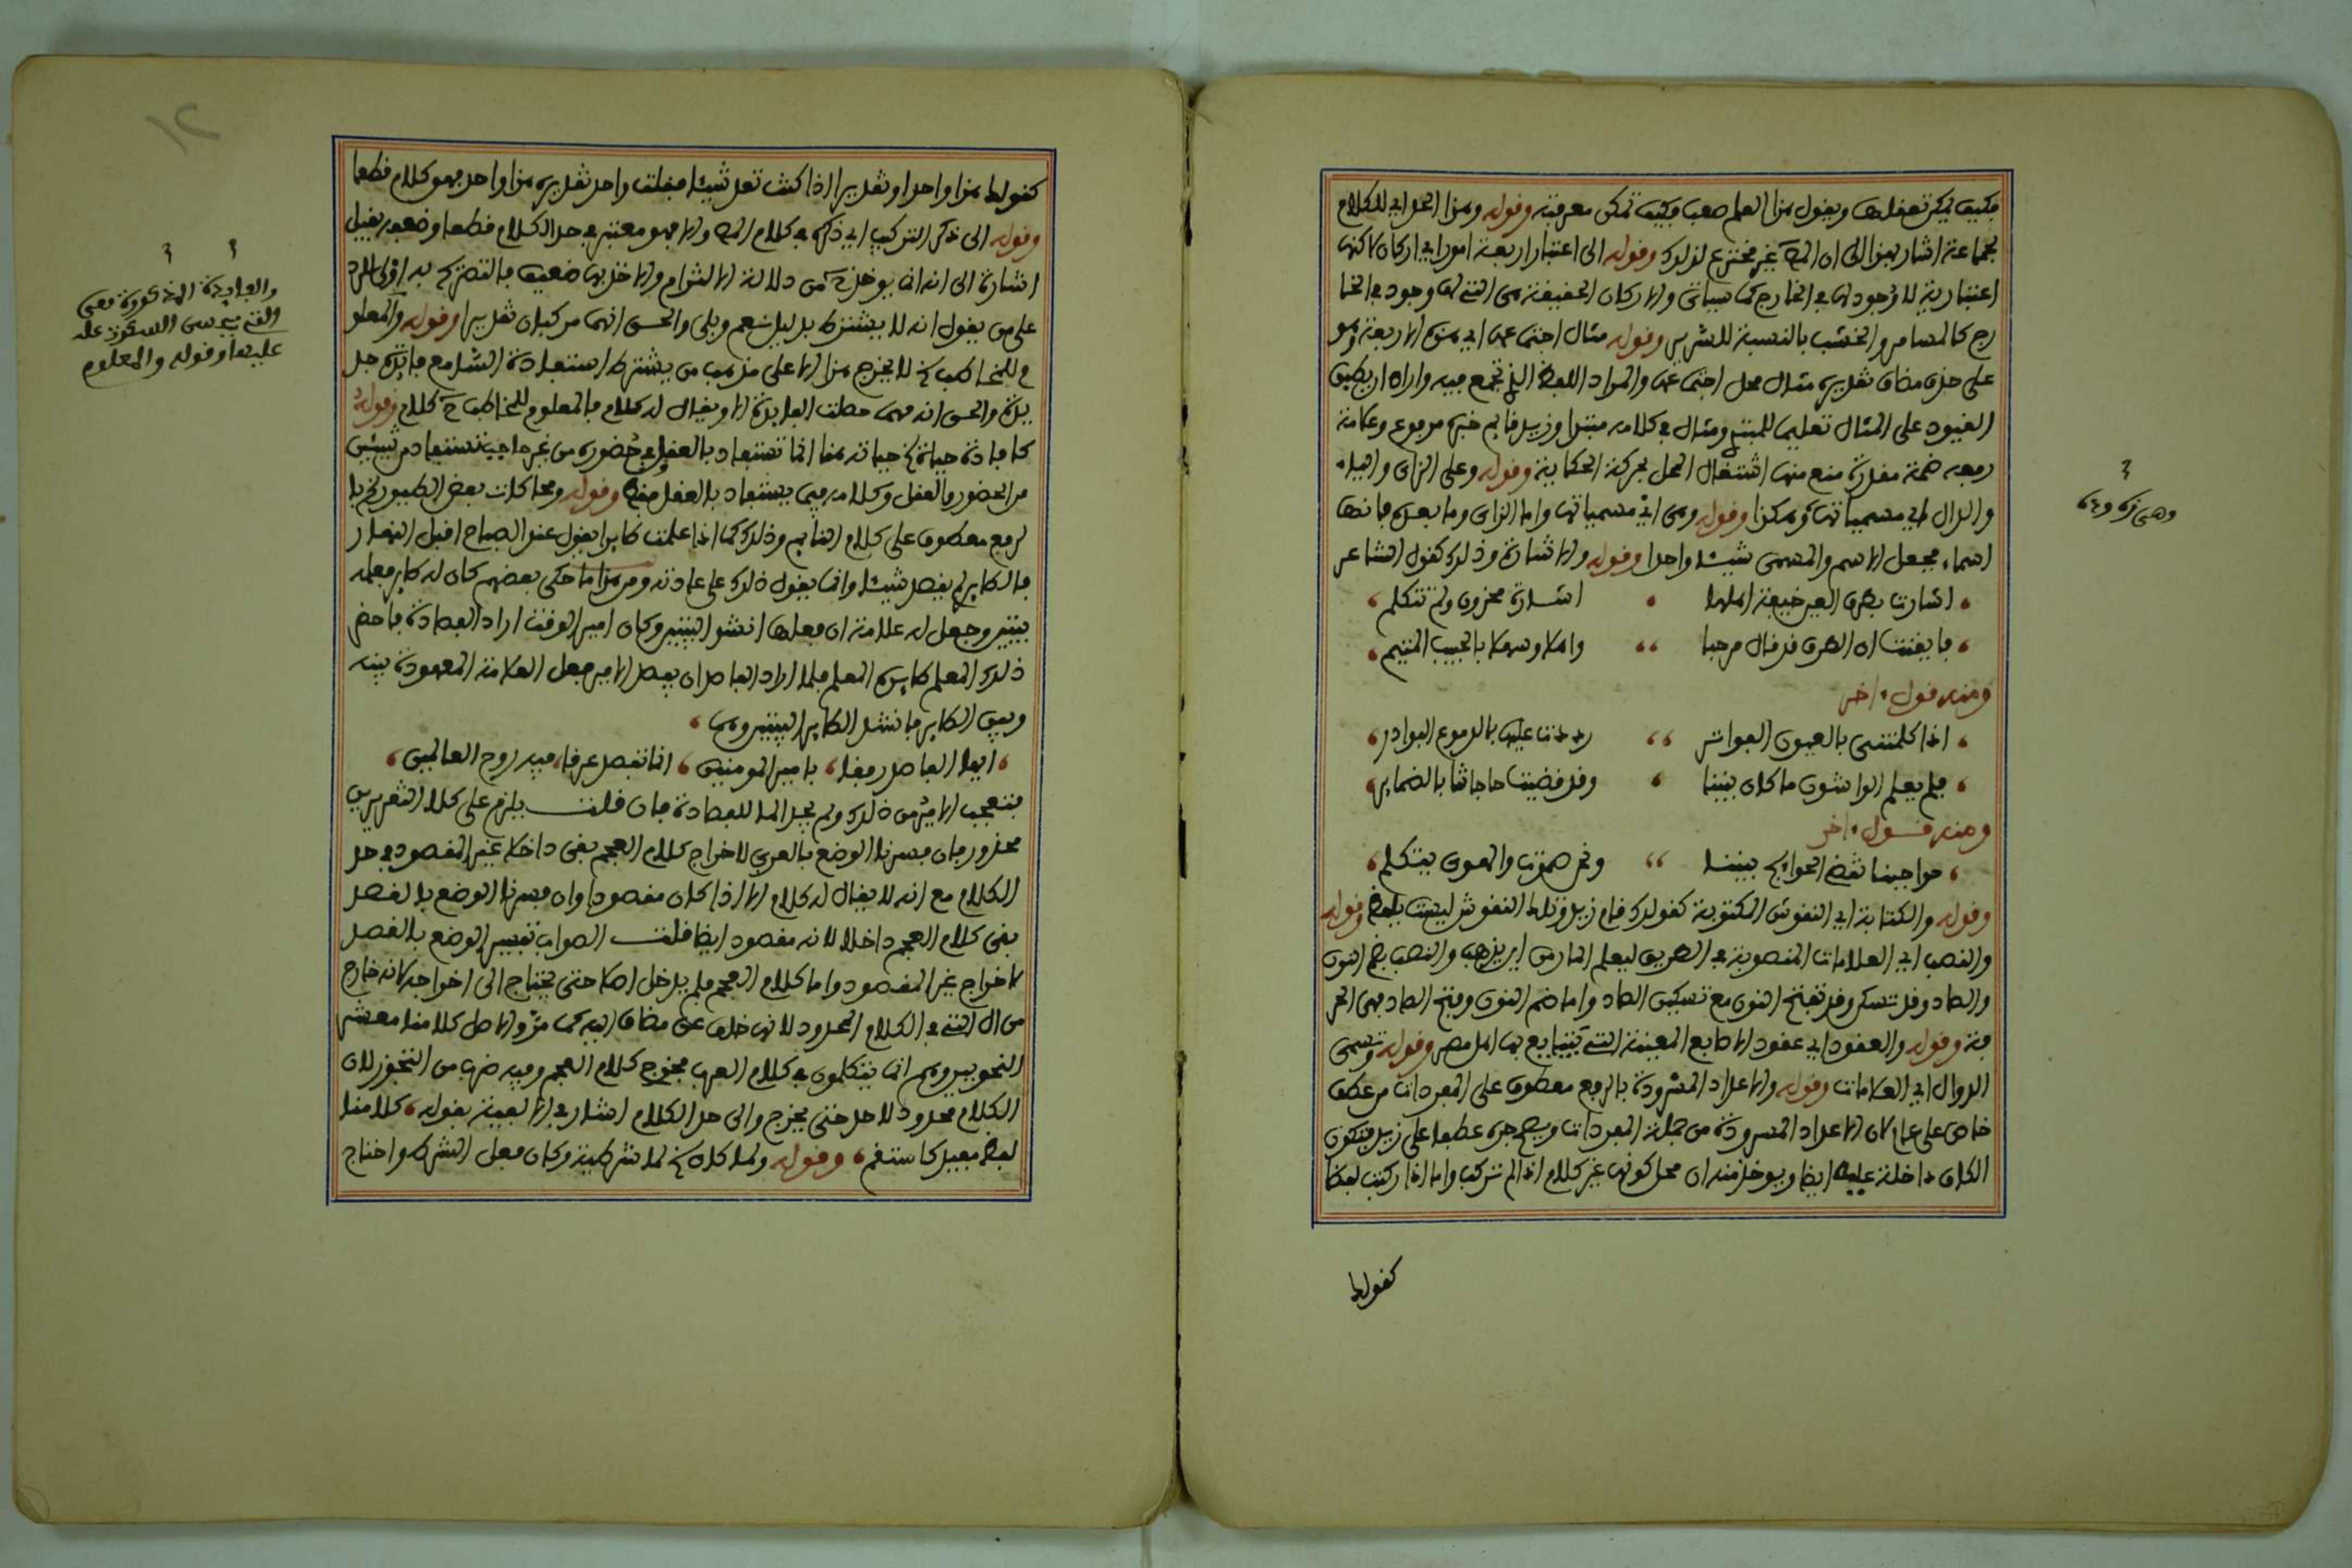 فكيف يمكن تعقلها ويقول هذا العلم صعب فكيف تمكن معرفته وقوله وهذا الحد اي للكلام
لجماعة اشار بهذا الى ان المص غير مخترع لذلك وقوله الى اعتبار اربعة امور اي اركان لاكنها
اعتبارية لا وجود لها في الخارج كما سياتي والاركان الحقيقية هي التي لها وجود في الخا
رج كالمسامر والخشب بالنسبة للسرير وقوله مثال اجتماعها اي هذه الاربعة وهو
على حذف مضاف تقديره مثال محل اجتماعها والمراد اللفظ الذي تجمع فيه واراد ان يطبق
القيود على المثال تعليما للمبتدي ومثال في كلامه مبتدا وزيد قايم خبره مرفوع وعلامة
رفعه ضمة مقدرة منع منها اشتغال المحل بحركة الحكاية وقوله وعلى الزاي والياء
والدال اي مسمياتها وهكذا وقوله وهي اي مسمياتها واما الزاي وما بعده فانها
اسماء فجعل الاسم والمسمى شيئا واحدا وقوله والاشارة وذلك كقول الشاعر
اشارت بطرف العين خيفة اهلها اشارة محزون ولم تتكلم
فايقنت ان الطرف قد قال مرحبا واهلا وسهلا بالحبيب المتيم
ومنه قول اخر
اذا كلمتني بالعيون الفواتر رددت عليها بالدموع البوادر
فلم يعلم الواشون ما كان بيننا وقد قضيت حاجاتنا بالضماير
ومنه قول اخر
حواجبنا تقضي الحوايج بيننا ونحن صموت والهوى يتكلم
وقوله والكتابة اي النقوش المكتوبة كقولك قام زيد وتلك النقوش ليست بلفظ وقوله
والنصب اي العلامات المنصوبة في الطريق ليعلم المار من اين يذهب والنصب بضم النون
والصاد وقد تسكن وقد تفتح النون مع تسكين الصاد واما ضم النون وفتح الصاد فهي الحر
فة وقوله والعقود اي عقود الاصابع المعينة التي يتبايع بها اهل مصر وقوله وتسمى
الدوال اي العلامات وقوله والاعداد المسرودة بالرفع معطوف على المفردات من عطف
خاص على عام لان الاعداد المسرودة من جملة المفردات ويصح جره عطفا على زيد فتكون
الكاف داخلة عليه ايضا ويوخذ منه ان محل كونها غير كلام اذا لم تركب واما اذا ركبت لفظا
كقولك
وهي زه ويه
كقولك هذا واحد او تقديرا اذا كنت تعد شيئا فقلت واحد تقديره هذا واحد فهو كلام قطعا
وقوله الى ذكر التركيب اي ذكره في كلام المص والا فهو معتبر في حد الكلام قطعا وضعفه بقيل
اشارة الى انه انما يوخذ من دلالة الالتزام والاخذ بها ضعيف فالتصريح به اولى للرد
على من يقول انه لا يشترط بدليل نعم وبلى والحق انهما مركبان تقديرا وقوله والمعلو
م للمخاطب لا يخرج هذا الا على مذهب من يشترط استفادة السامع فايدة جد
يدة والحق انه مهما حصلت الفايدة الا ويقال له كلام فالمعلوم للمخاطب كلام وقوله
كافادة حياة حياته هنا انما تستفاد بالعقل في حضوره من غير حاجب تستفاد من شيئين
من الحضور والعقل وكلامه فيما يستفاد بالعقل فقط وقوله ومحاكات بعض الطيور
لرفع معطوف على كلام النايم وذلك كما اذا علمت طايرا يقول عند الصباح اقبل النهار
فالطاير لم يقصد شيئا وانما يقول ذلك على عادته ومن هذا ما حكي بعضهم كان له طاير فعلمه
بيتين وجعل له علامة ان فعلها انشد البيتين وكان امير الوقت اراد الفصادة فاحضر
ذلك المعلم طايره المعلم فلما اراد الفاصد ان يفصد الامير جعل العلامة المعهودة بينه
وبين الطاير فانشد الطاير البيتين وهما
ايها الفاصد رفقا بامير المومنين انما تفصد عرقا فيه روح العالمين
فتعجب الامير من ذلك ولم يجد الما للفصادة فان قلت يلزم على كلا التفسيرين
محذور فان فسرنا الوضع بالعربي لاخراج كلام العجم بقي داخلا غير المقصود في حد
الكلام مع انه لا يقال له كلام الا اذا كان مقصودا وان فسرنا الوضع بالقصد
بقي كلام العجم داخلا لانه مقصود ايضا قلت الصواب تفسير الوضع بالقصد
لاخراج غير المقصود واما كلام العجم فلم يدخل اصلا حتى يحتاج الى اخراجه لانه خارج
من ال التي في الكلام المحدود لانها خلف عن مضاف اليه كما مر والاصل كلامنا معشر
النحويين وهم انما يتكلمون في كلام العرب فخرج كلام العجم وفيه ضرب من التجوز لان
الكلام محدود لا حد حتى يخرج والى حد الكلام اشار في الالفية بقوله كلامنا
لفظ مفيد كاستقم وقوله ولما كان لما شرطية وكان فعل الشرط واحتاج
والفايدة المذكورة فهي
التي يحسن السكوت عليه
عليها وقوله والمعلوم
١٢